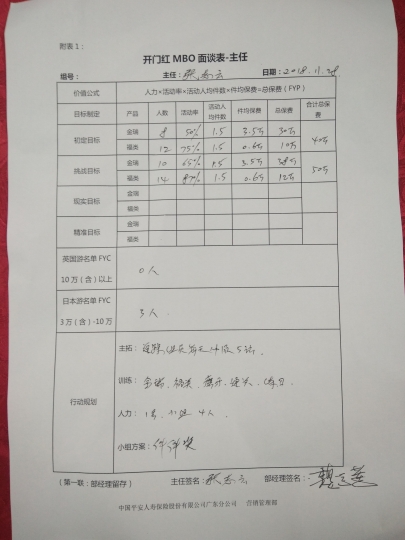 附表1：
开门红 MBO 面谈表-主任
组号： 主任：张志云 日期：2018.11.28
价值公式 人力×活动率×活动人均件数×件均保费=总保费（FYP）
目标制定 产品 人数 活动率 活动人均件数 件均保费 总保费 合计总保费
初定目标 金瑞 8 50% 1.5 3.5万 30万 40万
福类 12 75% 1.5 0.6万 10万
挑战目标 金瑞 10 65% 1.5 3.5万 38万 50万
福类 14 87% 1.5 0.6万 12万
现实目标 金瑞
福类
精准目标 金瑞
福类
英国游名单 FYC 10万（含）以上 0人
日本游名单 FYC 3万（含）-10万 3人.
行动规划
主拓：
训练：金瑞、福类、
人力： 4人.
小组方案：件件奖
（第一联：部经理留存） 主任签名：张志云 部经理签名：
中国平安人寿保险股份有限公司广东分公司 营销管理部